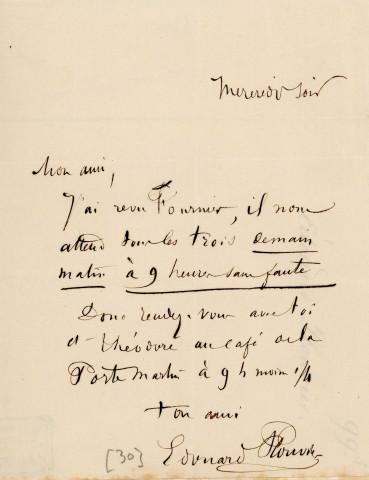 Mercredi soir
Mon ami,
J'ai revu Fournier, il nous
attend tous les trois demain
matin à 9 heures sans faute
Donc rendez-vous avec toi
et Théodore au café de la
Porte Martin à 9 h moins 1/4
ton ami
[30]
Edouard Plouvier